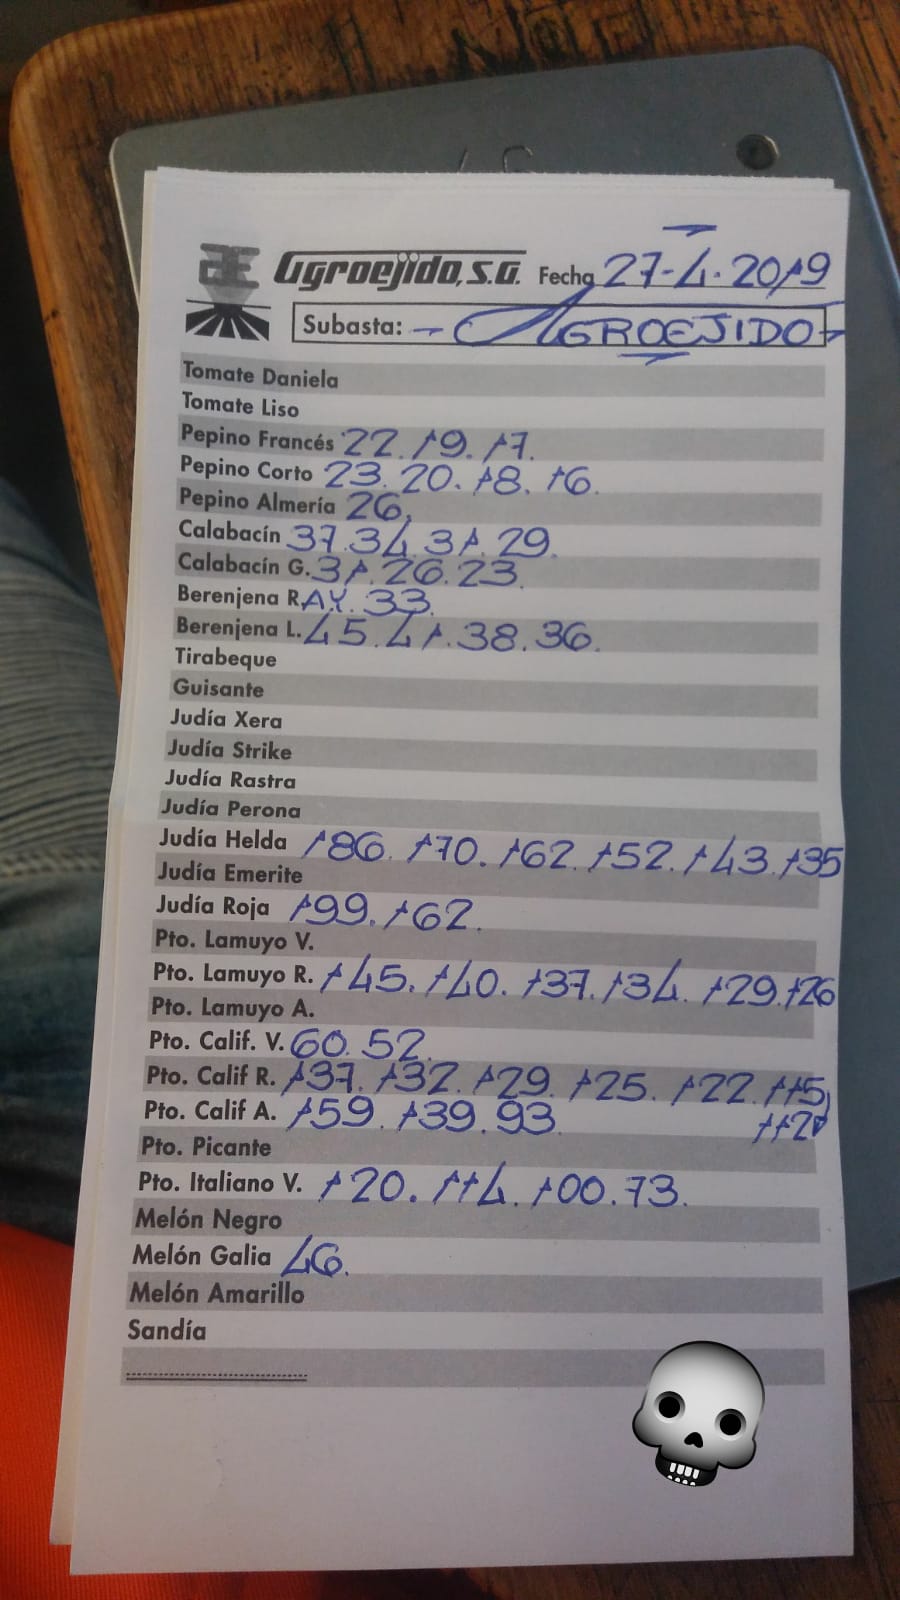 Agroejido, S.A. Fecha 27-4-2019
Subasta: - AGROEJIDO -
Tomate Daniela
Tomate Liso
Pepino Francés 22. 19. 17.
Pepino Corto 23. 20. 18. 16.
Pepino Almería 26.
Calabacín 37. 34. 31. 29.
Calabacín G. 31. 26. 23.
Berenjena RAY. 33.
Berenjena L. 45. 41. 38. 36.
Tirabeque
Guisante
Judía Xera
Judía Strike
Judía Rastra
Judía Perona
Judía Helda 186. 170. 162. 152. 143. 135
Judía Emerite
Judía Roja 199. 162.
Pto. Lamuyo V.
Pto. Lamuyo R. 145. 140. 137. 134. 129. 126
Pto. Lamuyo A.
Pto. Calif. V. 60. 52.
Pto. Calif R. 137. 132. 129. 125. 122. 115
112
Pto. Calif A. 159. 139. 93.
Pto. Picante
Pto. Italiano V. 120. 114. 100. 73.
Melón Negro
Melón Galia 46.
Melón Amarillo
Sandía